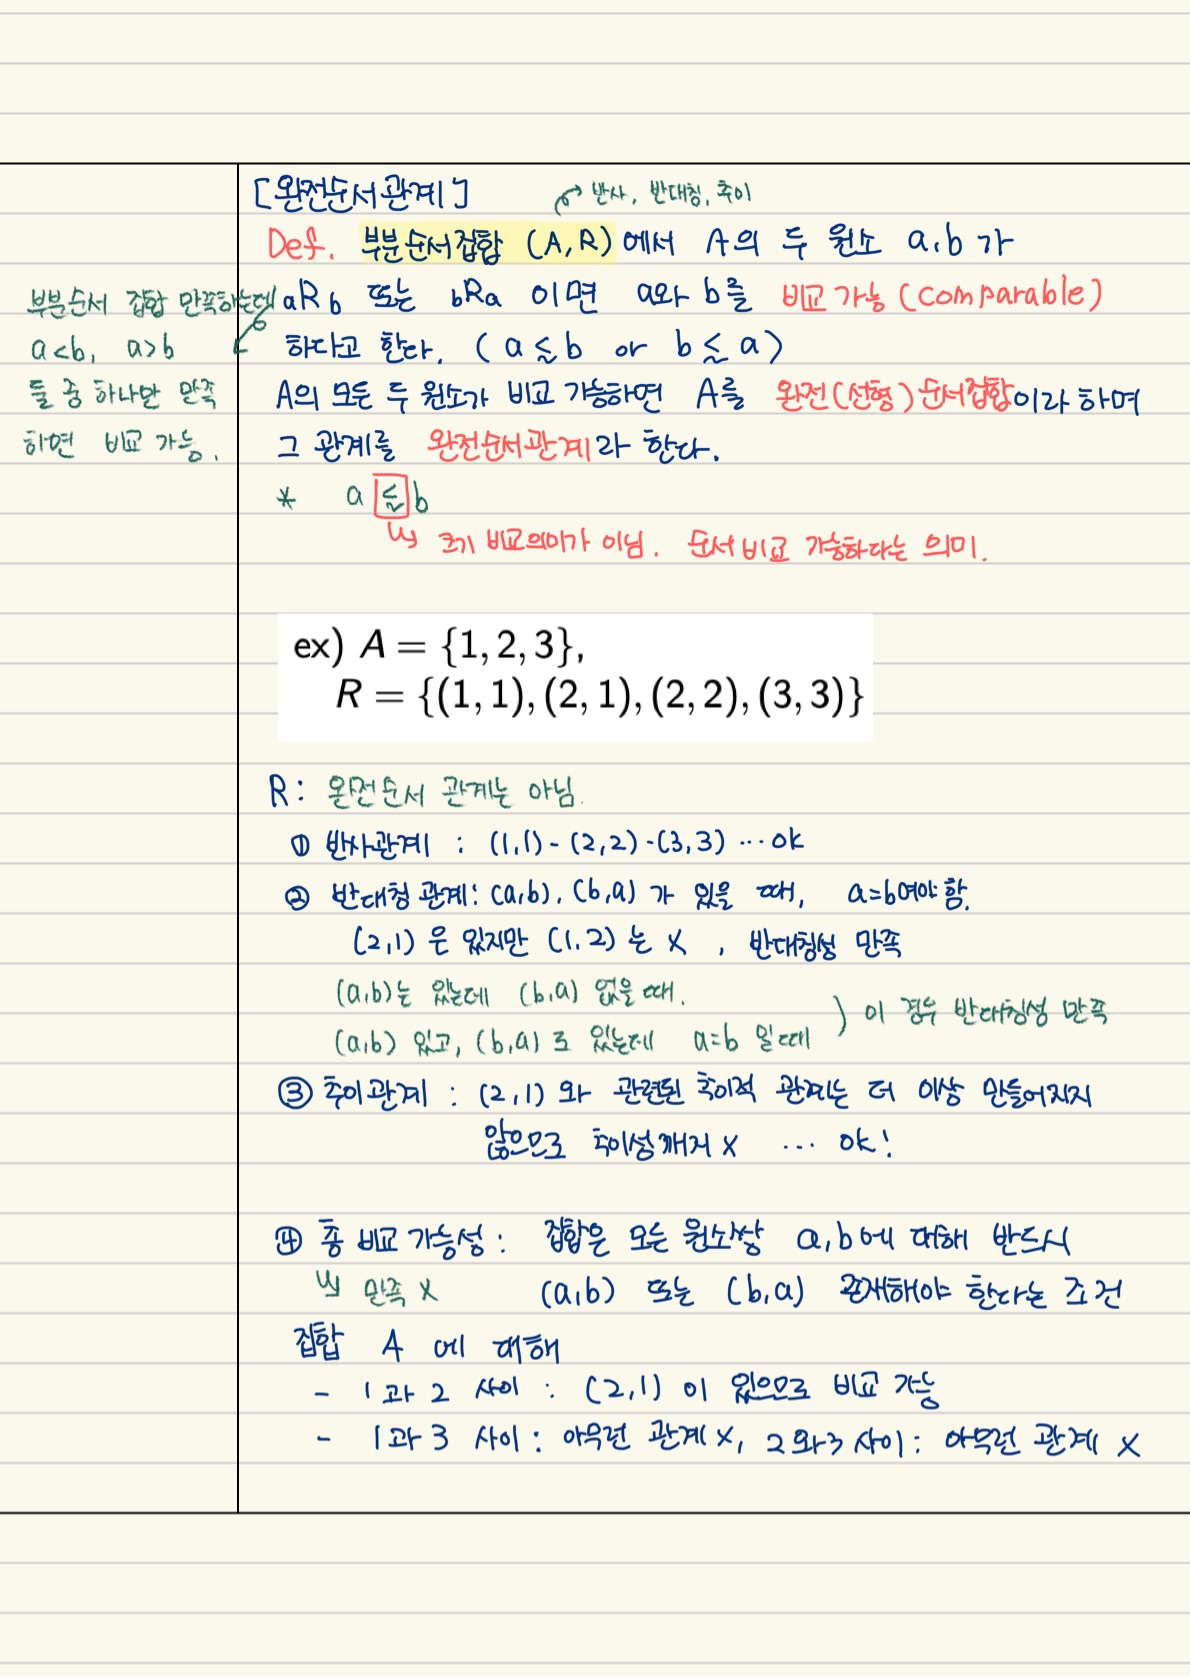 [완전순서관계]
반사, 반대칭, 추이
Def. 부분순서집합 (A, R) 에서 A의 두 원소 a, b 가
aRb 또는 bRa 이면 a와 b를 비교 가능 (comparable)
하다고 한다. (a ≤ b or b ≤ a)
부분순서 집합 만족하는데
a<b, a>b
둘 중 하나만 만족
하면 비교 가능.
A의 모든 두 원소가 비교 가능하면 A를 완전(선형) 순서집합이라 하며
그 관계를 완전순서관계라 한다.
* a ≤ b
크기 비교의미가 아님. 순서 비교 가능하다는 의미.
ex) A = {1, 2, 3},
R = {(1, 1), (2, 1), (2, 2), (3, 3)}
R: 완전순서 관계는 아님.
① 반사관계 : (1,1) - (2,2) - (3,3) … ok
② 반대칭 관계: (a,b), (b,a) 가 있을 때, a=b여야 함.
(2,1) 은 있지만 (1,2) 는 x , 반대칭성 만족
(a,b)는 있는데 (b,a) 없을 때.
(a,b) 있고, (b,a)도 있는데 a=b 일때
) 이 경우 반대칭성 만족
③ 추이관계 : (2,1) 와 관련된 추이적 관계는 더 이상 만들어지지
않으므로 추이성 깨지 x … ok!
④ 총 비교 가능성 : 집합은 모든 원소쌍 a,b에 대해 반드시
만족 x (a,b) 또는 (b,a) 존재해야 한다는 조건
집합 A 에 대해
- 1과 2 사이 : (2,1) 이 있으므로 비교 가능
- 1과 3 사이 : 아무런 관계 x, 2와 3 사이 : 아무런 관계 x